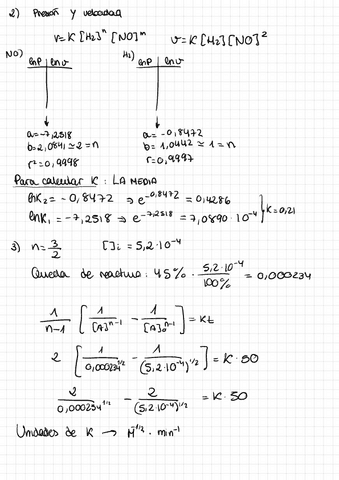 2) Presión y velocidad
v=K[H₂]ⁿ[NO]ᵐ   v=K[H₂][NO]²
NO)   H₂)
lnP | lnv   lnP | lnv
a=-7,2518   a=-0,8472
b=2,0841≃2=n   b=1,0442≃1=n
r²=0,9998   r=0,9997
Para calcular K: LA MEDIA
lnK₂=-0,8472 ⇒ e^-0,8472=0,4286
lnK₁=-7,2518 ⇒ e^-7,2518=7,0890·10⁻⁴ } K=0,21
3) n=3/2   []i=5,2·10⁻⁴
Queda de reactivo: 45%·5,2·10⁻⁴/100%=0,000234
1/n-1 [1/[A]ⁿ⁻¹ - 1/[A]₀ⁿ⁻¹]=Kt
2 [1/0,000234^1/2 - 1/(5,2·10⁻⁴)^1/2]=K·50
2/0,000234^1/2 - 2/(5,2·10⁻⁴)^1/2=K·50
Unidades de K → M^-1/2·min⁻¹